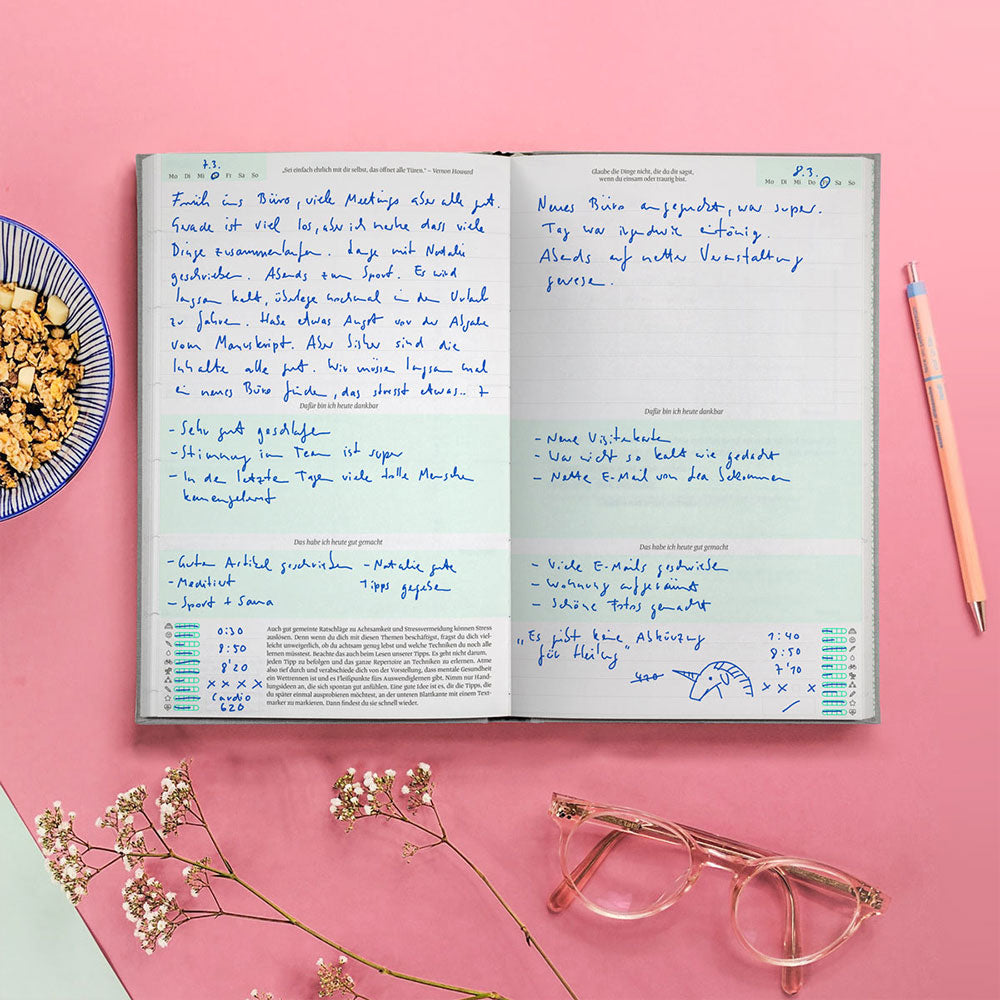 7.3.
„Sei einfach ehrlich mit dir selbst, das öffnet alle Türen.“ – Vernon Howard
Mo Di Mi Do Fr Sa So
Früh ins Büro, viele Meetings aber alle gut.
Gerade ist viel los, aber ich merke dass viele
Dinge zusammenlaufen. Lange mit Natalie
geschrieben. Abends zum Sport. Es wird
langsam kalt, überlege nochmal in den Urlaub
zu fahren. Habe etwas Angst vor der Abgabe
vom Manuskript. Aber bisher sind die
Inhalte alle gut. Wir müssen langsam mal
ein neues Büro finden, das stresst etwas..
Dafür bin ich heute dankbar
- Sehr gut geschlafen
- Stimmung im Team ist super
- In den letzten Tagen viele tolle Menschen
kennengelernt
Das habe ich heute gut gemacht
- Guten Artikel geschrieben - Natalie gute
- Meditiert Tipps gegeben
- Sport + Sauna
0:30
8:50
8'20
x x x x
Cardio
620
Auch gut gemeinte Ratschläge zu Achtsamkeit und Stressvermeidung können Stress
auslösen. Denn wenn du dich mit diesen Themen beschäftigst, fragst du dich viel-
leicht unweigerlich, ob du achtsam genug lebst und welche Techniken du noch alle
lernen müsstest. Beachte das auch beim Lesen unserer Tipps. Es geht nicht darum,
jeden Tip zu befolgen und das ganze Repertoire an Techniken zu erlernen. Atme
also tief durch und verabschiede dich von der Vorstellung, dass mentale Gesundheit
ein Wettrennen ist und es Fleißpunkte fürs Auswendiglernen gibt. Nimm nur Hand-
lungsideen an, die sich spontan gut anfühlen. Eine gute Idee ist es, dir die Tipps, die
du später einmal ausprobieren möchtest, an der unteren Blattkante mit einem Text-
marker zu markieren. Dann findest du sie schnell wieder.
Glaube die Dinge nicht, die du dir sagst,
wenn du einsam oder traurig bist.
8.3.
Mo Di Mi Do Fr Sa So
Neues Büro angeguckt, war super.
Tag war irgendwie eintönig.
Abends auf netter Veranstaltung
gewesen.
Dafür bin ich heute dankbar
- Neue Visitenkarten
- War nicht so kalt wie gedacht
- Nette E-Mail von bekommen
Das habe ich heute gut gemacht
- Viele E-Mails geschrieben
- Wohnung aufgeräumt
- Schöne Fotos gemacht
„Es gibt keine Abkürzung
für Heilung"
1:40
8:50
7'10
x x x